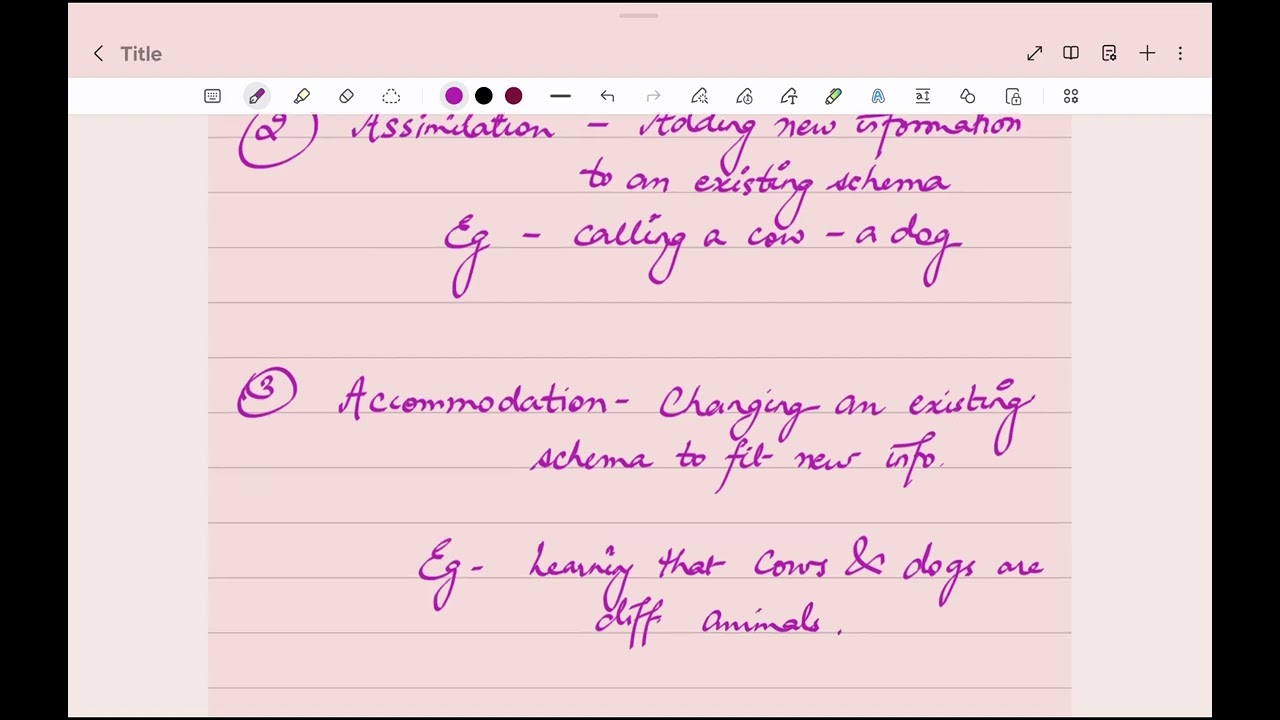 Title
2 Assimilation - Adding new information
to an existing schema
Eg - calling a cow - a dog
3 Accommodation - Changing an existing
schema to fit new info.
Eg - Learning that cows & dogs are
diff animals.